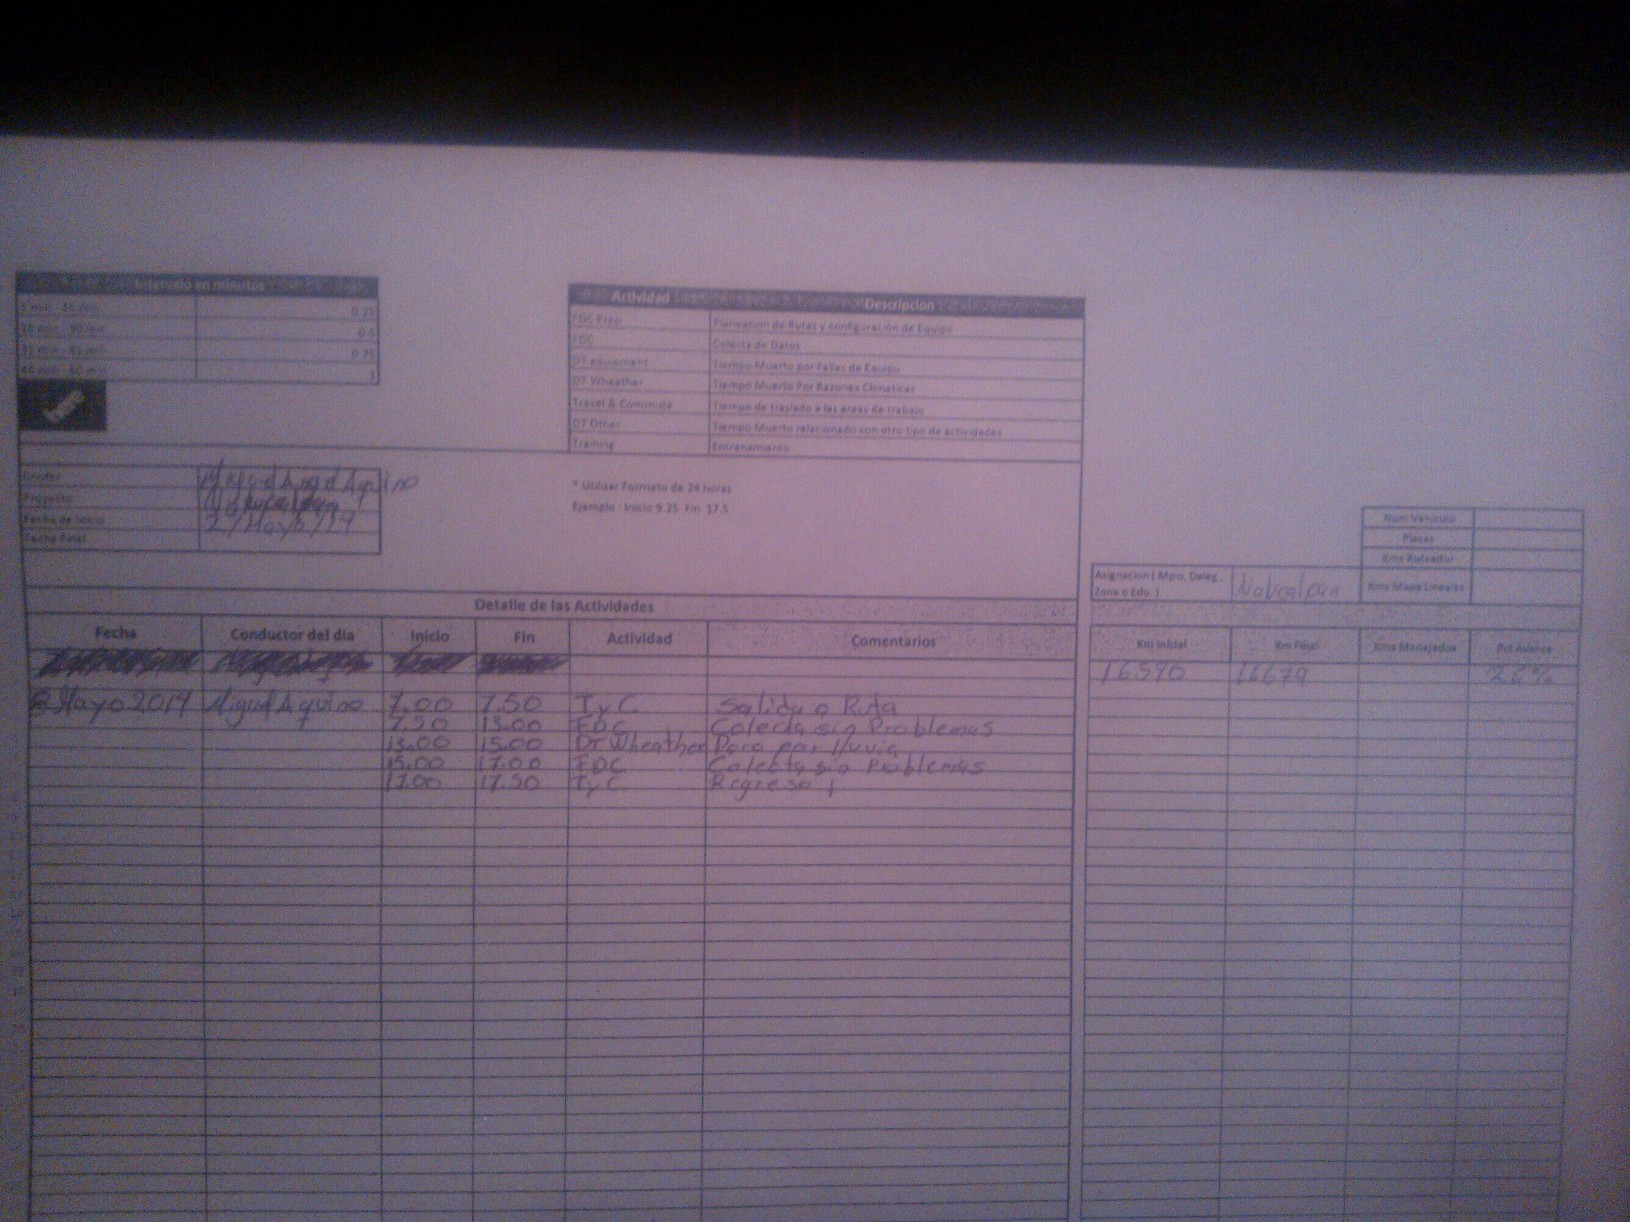 Intervalo en minutos
0.25
0.5
0.75
1
Actividad Descripcion
FDC Prep Planeacion de Rutas y configuración de Equipo
FDC Colecta de Datos
DT equipment Tiempo Muerto por Fallas de Equipo
DT Wheather Tiempo Muerto Por Razones Climaticas
Travel & Commute Tiempo de traslado a las areas de trabajo
DT Other Tiempo Muerto relacionado con otro tipo de actividades
Training Entrenamiento
Chofer Miguel Angel Aquino
Proyecto Naucalpan
Fecha de Inicio
Fecha Final
* Utilizar Formato de 24 horas
Ejemplo : Inicio 9.25 Fin 17.5
Num Vehiculo
Placas
Kms Ruteador
Kms Mapa Lineales
Asignacion ( Mpio, Deleg, Zona o Edo. ) Naucalpan
Detalle de las Actividades
Fecha Conductor del dia Inicio Fin Actividad Comentarios
Km Inicial Km Final Kms Manejados Pct Avance
16590 16679 26%
Mayo 2014 Miguel Aquino 7.00 7.50 TyC Salida a Ruta
7.50 13.00 FDC Colecta sin Problemas
13.00 15.00 DT Wheather Paro por lluvia
15.00 17.00 FDC Colecta sin Problemas
17.00 17.50 TyC Regreso